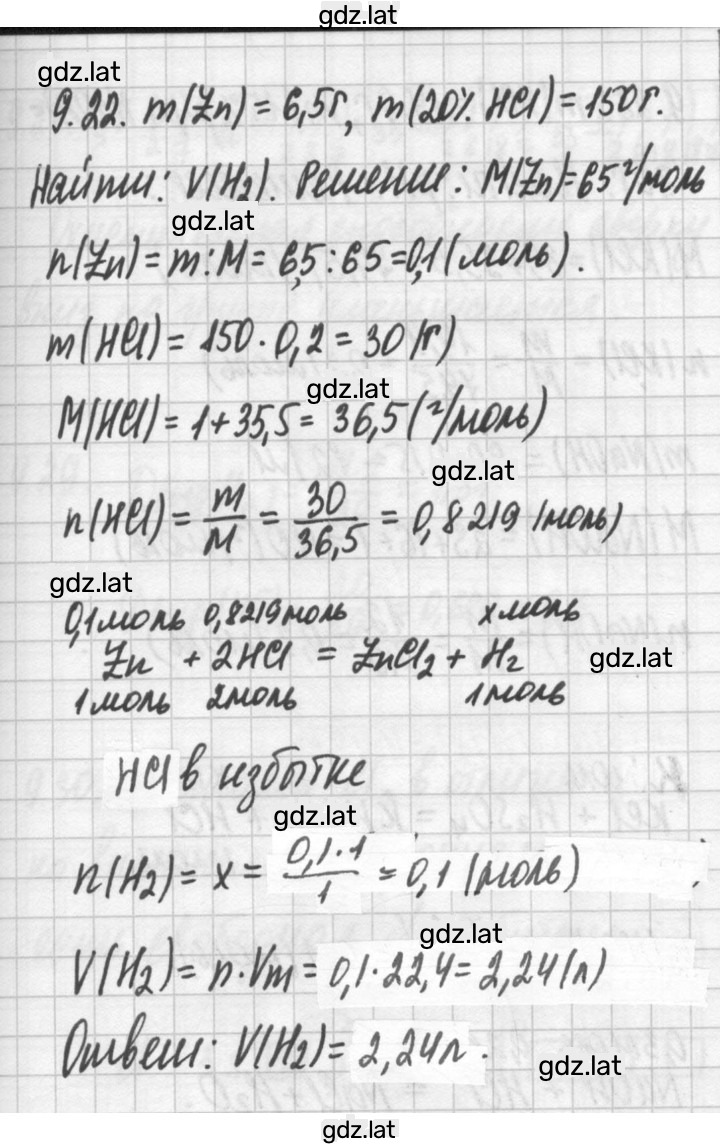 gdz.lat
gdz.lat
9.22. m(Zn) = 6,5г, m(20% HCl) = 150г.
Найти: V(H₂). Решение: M(Zn)=65 г/моль
gdz.lat
n(Zn) = m:M = 6,5:65=0,1(моль).
m(HCl) = 150·0,2 = 30(г)
gdz.lat
M(HCl) = 1+35,5 = 36,5 (г/моль)
gdz.lat
n(HCl) = m/M = 30/36,5 = 0,8219 (моль)
gdz.lat
0,1моль 0,8219моль x моль
Zn + 2HCl = ZnCl₂ + H₂ gdz.lat
1моль 2моль 1моль
HCl в избытке
gdz.lat
n(H₂) = x = 0,1·1/1 = 0,1 (моль)
gdz.lat
V(H₂) = n·Vm = 0,1·22,4 = 2,24(л)
Ответ: V(H₂) = 2,24л.
gdz.lat
gdz.lat